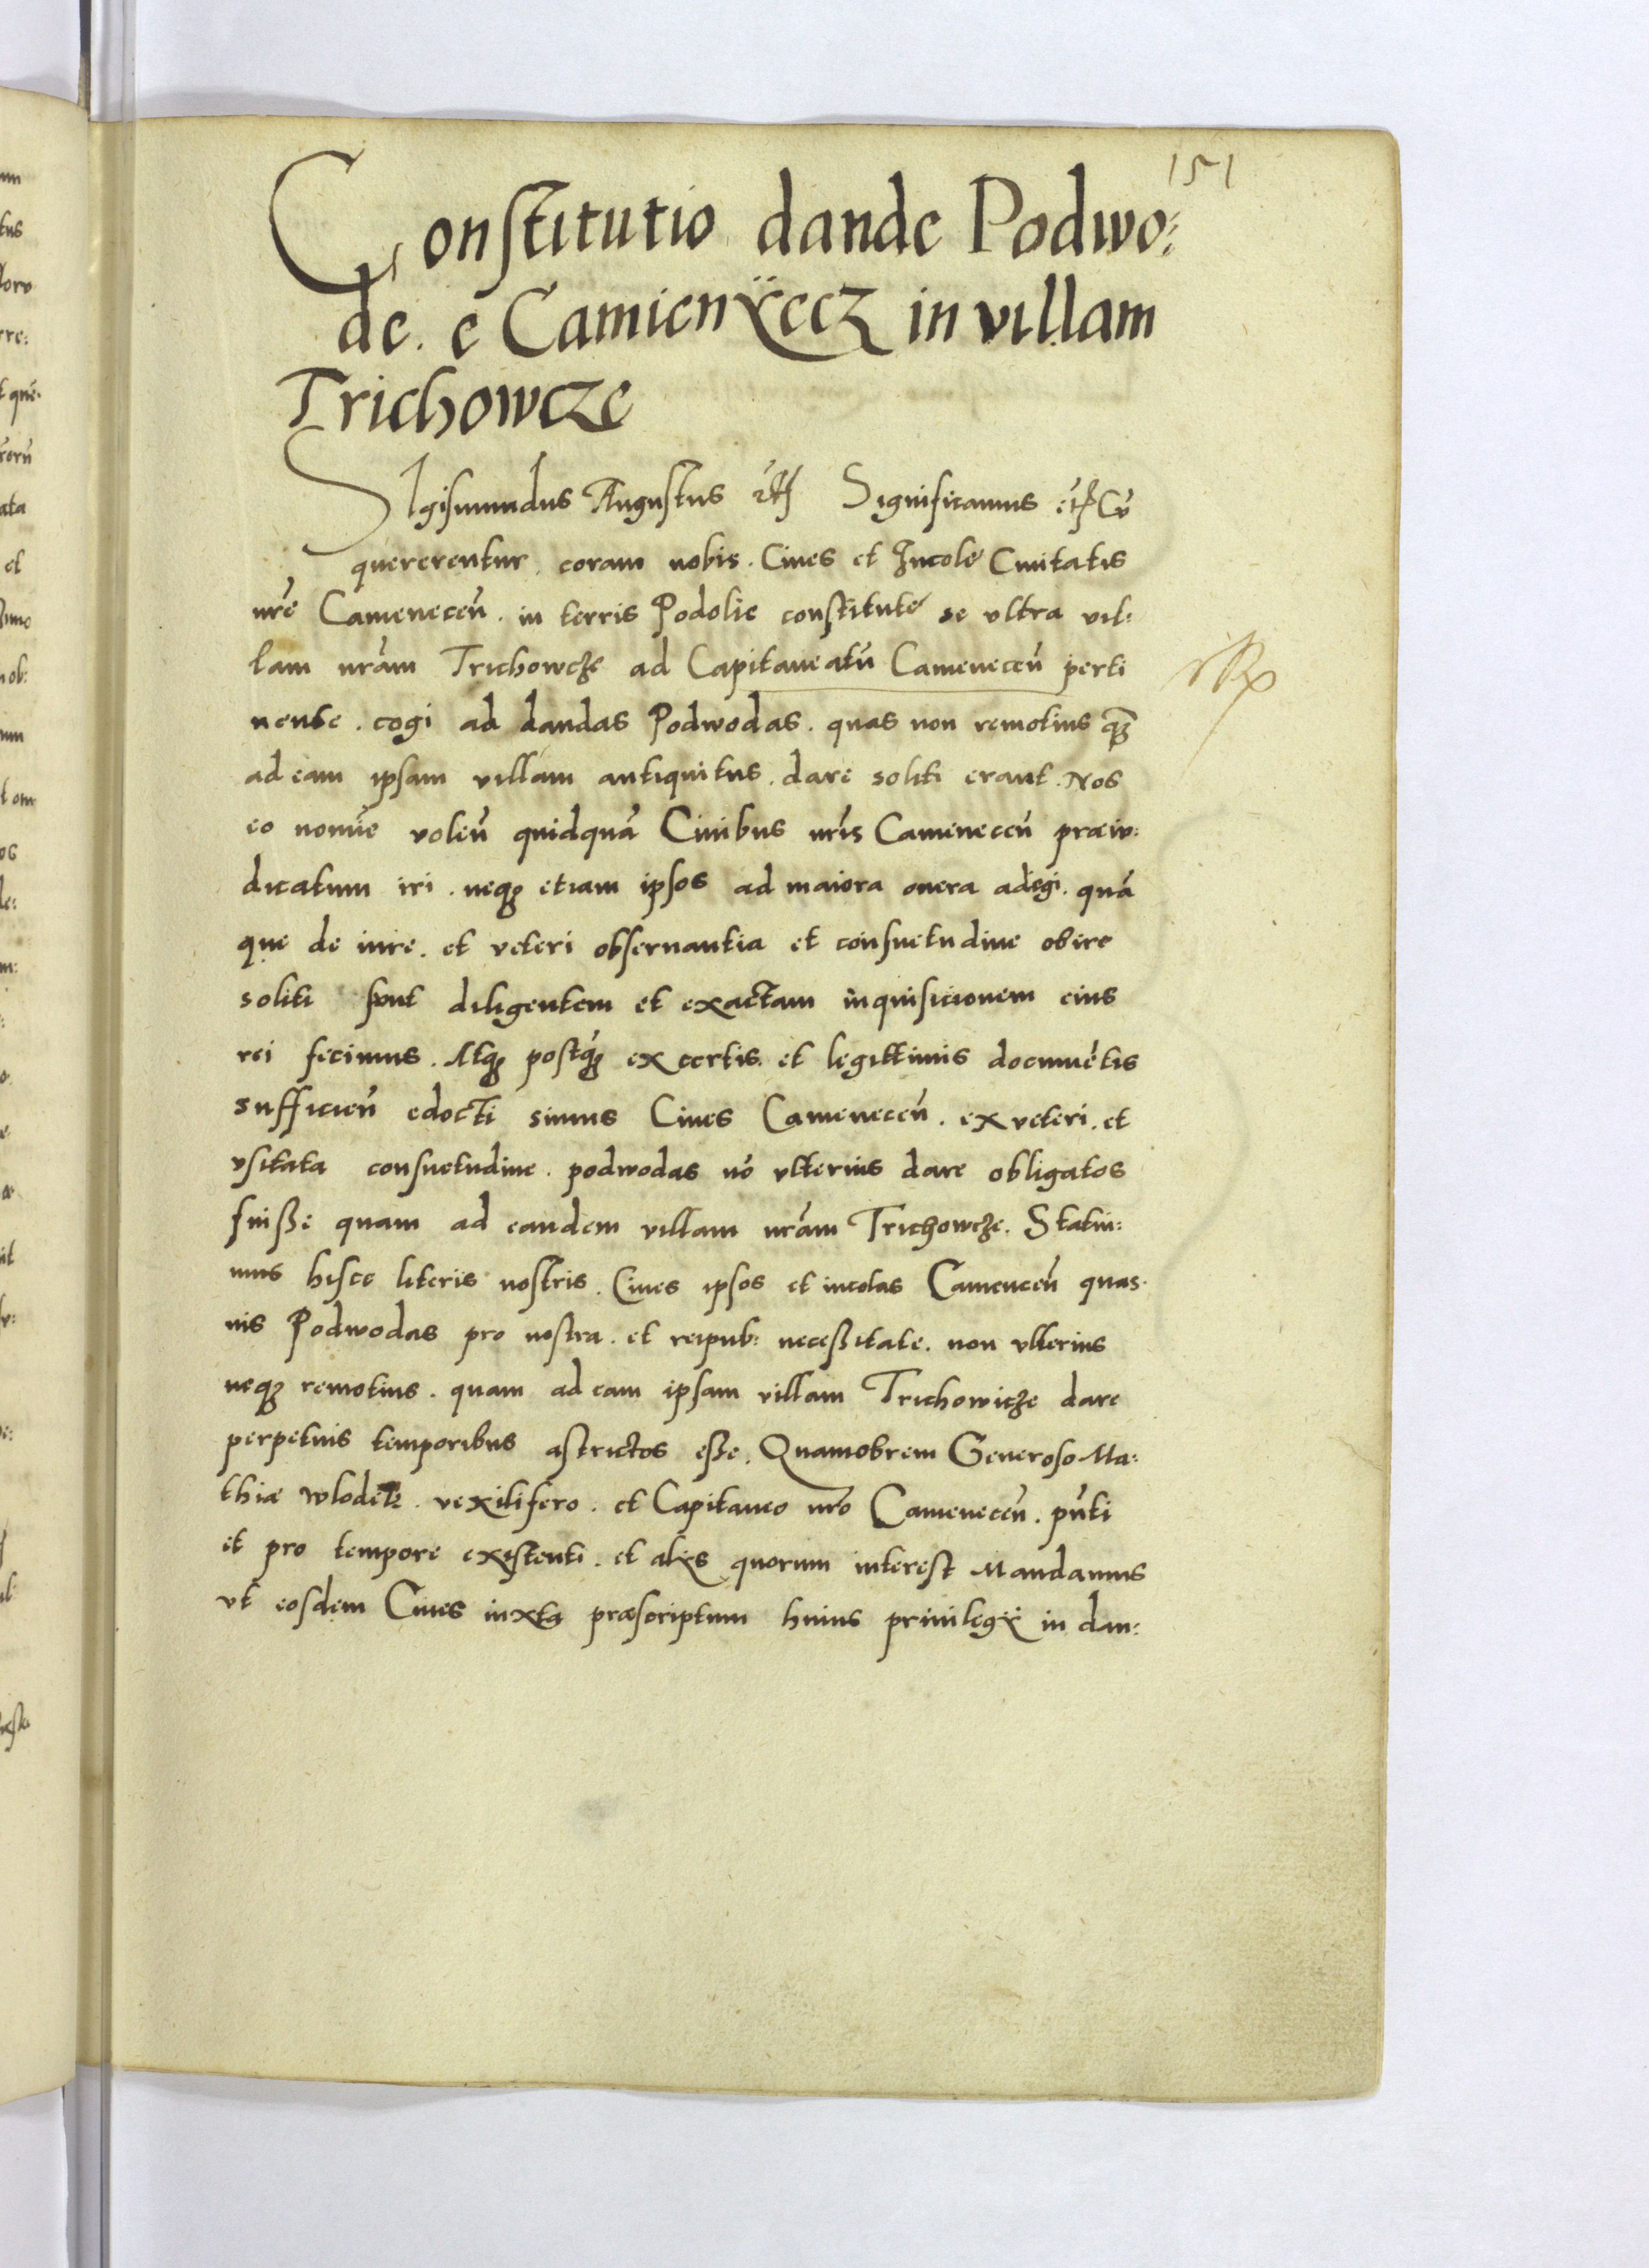 151
Constitutio dande Podwo:
de. e Camienÿecz in villam
Trichowcze
SIgismundus Augustus etc Significamus etc Cũ
quererentur. coram nobis. Ciues et Incole Ciuitatis
nr̃e Camenecen̄. in terris Podolie constitute se vltra vil:
lam nr̃am Trichowcze ad Capitaneatũ Camenecen̄ perti
nente. cogi ad dandas Podwodas. quas non remotius qꝫ
ad eam ipsam villam antiquitus. dare soliti erant. Nos
eo nomīe volen̄ quidquā Ciuibus nr̃is Camenecen̄ præiu:
dicatum iri. neqꝫ etiam ipsos ad maiora onera adigi. quā
que de iure. et veteri obseruantia et consuetudine obire
soliti sunt diligentem et exactam inquisicionem eius
rei fecimus. Atqꝫ postqꝫ ex certis. et legittimis documētis
sufficien̄ edocti simus Ciues Camenecen̄. ex veteri. et
vsitata consuetudine. podwodas nō vlterius dare obligatos
fuisse quam ad eandem villam nr̃am Trichowcze. Statui:
mus hisce literis nostris. Ciues ipsos et incolas Camenecen̄ quas
uis Podwodas pro nostra. et reipub: necessitate. non vlterius
neqꝫ remotius. quam ad eam ipsam villam Trichowicze dare
perpetuis temporibus astrictos esse. Quamobrem Generoso Ma:
thiæ Wlodek. vexilifero. et Capitaneo nr̃o Camenecen̄. pn̄ti
et pro tempore existenti. et alÿs quorum interest Mandamus
vt eosdem Ciues iuxta præscriptum huius priuilegÿ in dan: